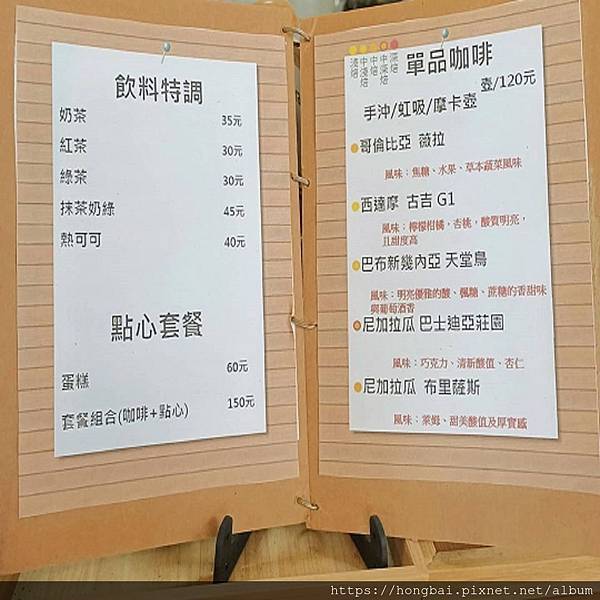 飲料特調
奶茶 35元
紅茶 30元
綠茶 30元
抹茶奶綠 45元
熱可可 40元
點心套餐
蛋糕 60元
套餐組合(咖啡+點心) 150元
淺焙 中淺焙 中焙 中深焙 深焙
單品咖啡
壺/120元
手沖/虹吸/摩卡壺
哥倫比亞 薇拉
風味：焦糖、水果、草本蔬菜風味
西達摩 古吉 G1
風味：檸檬柑橘，杏桃，酸質明亮，
且甜度高
巴布新幾內亞 天堂鳥
風味：明亮優雅的酸、楓糖、蔗糖的香甜味
與葡萄酒香
尼加拉瓜 巴士迪亞莊園
風味：巧克力、清新酸值、杏仁
尼加拉瓜 布里薩斯
風味：萊姆、甜美酸值及厚實感
https://hongbai.pixnet.net/album